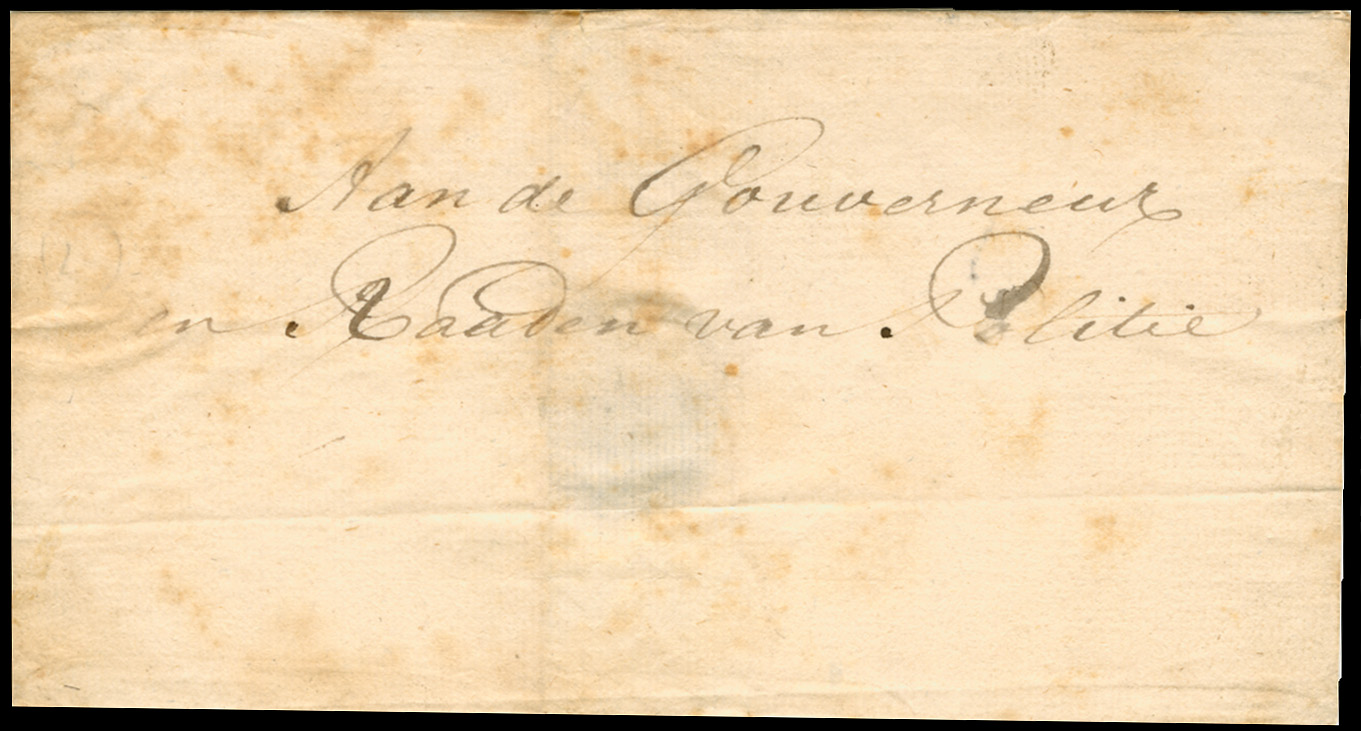 Aan de Gouverneur
en Raaden van Politie